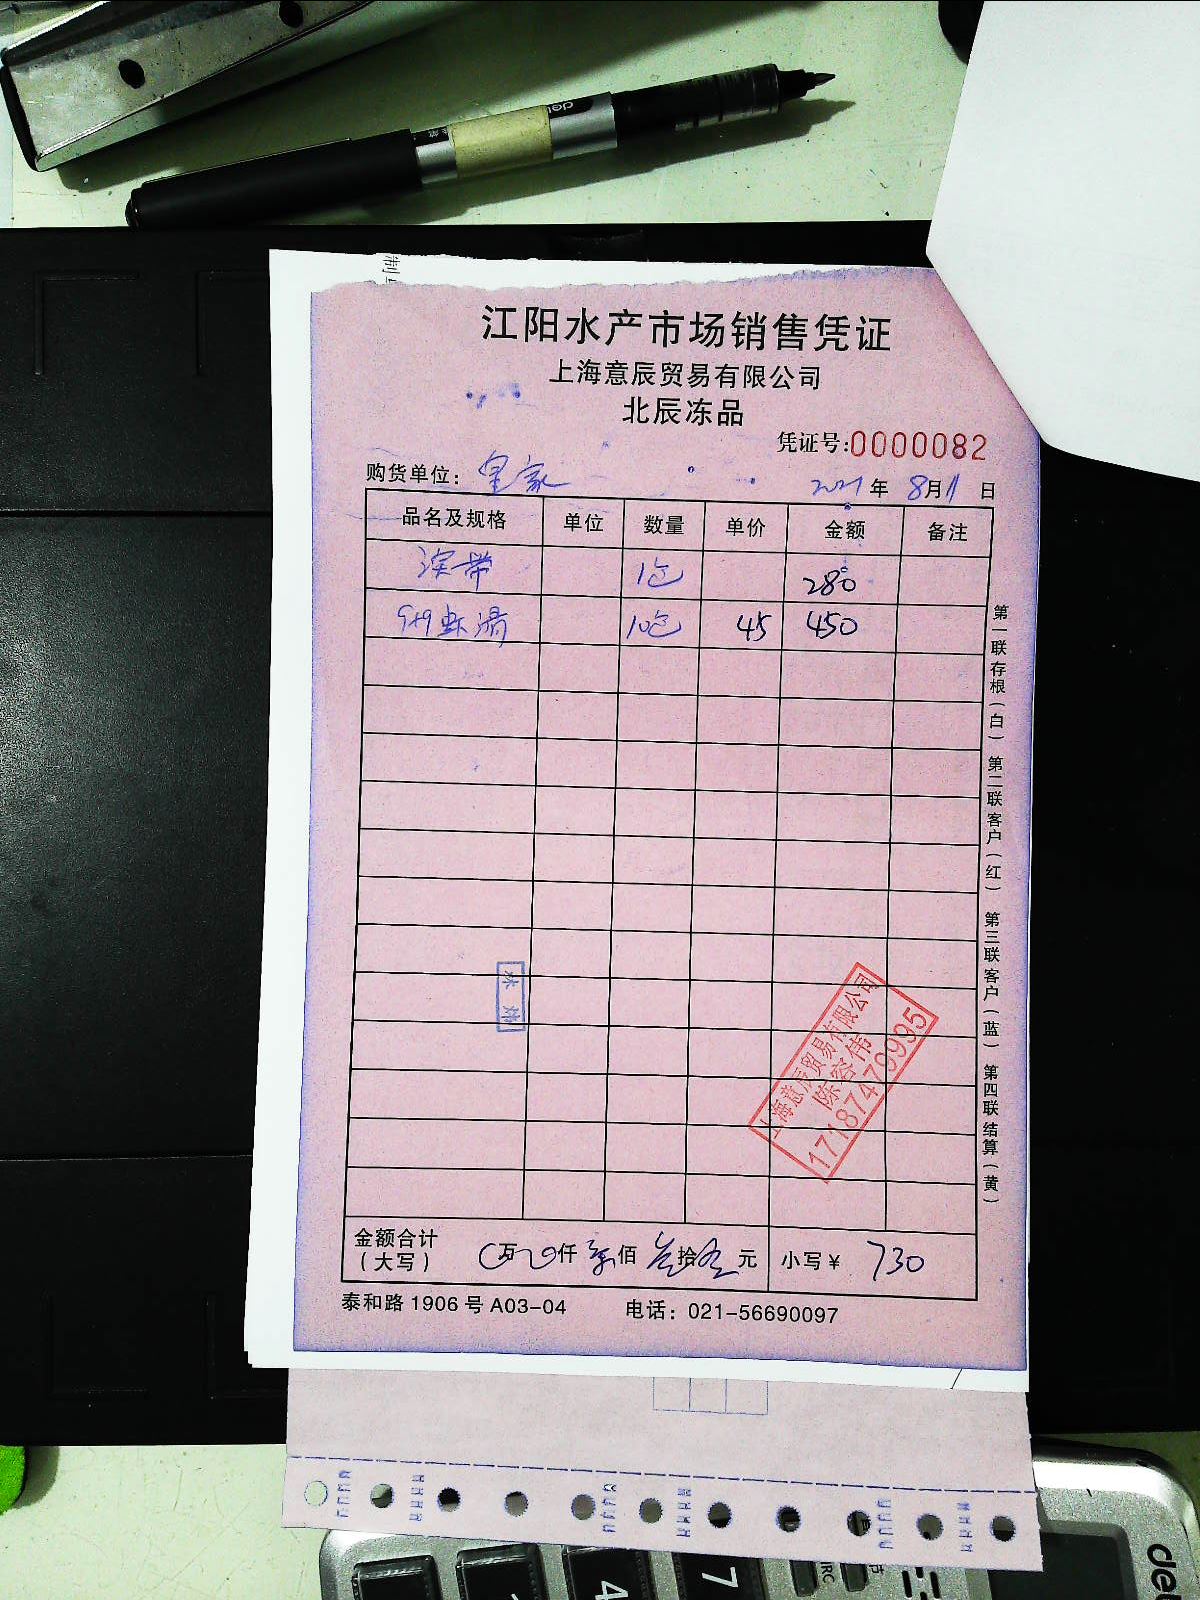 deli
江阳水产市场销售凭证
上海意辰贸易有限公司
北辰冻品
凭证号:0000082
购货单位: 皇家 2021年 8月11日
品名及规格 单位 数量 单价 金额 备注
深带 1包 280
1包 45 450
金额合计
(大写) 0万0仟柒佰叁拾元 小写¥ 730
泰和路 1906 号 A03-04 电话: 021-56690097
第一联存根(白) 第二联客户(红) 第三联客户(蓝) 第四联结算(黄)
上海意辰贸易有限公司
陈容伟
17187479995
7
4
deli